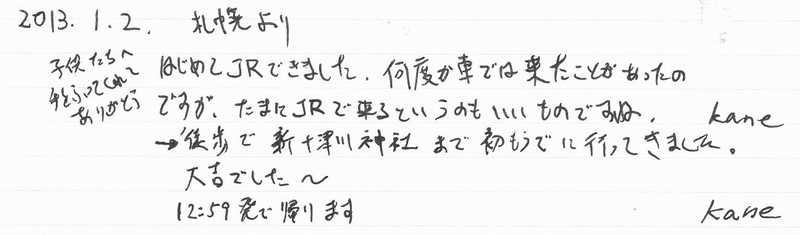 2013. 1. 2. 札幌より
子供たちへ
手をふってくれて
ありがとう
はじめてJRできました. 何度か車では来たことがあったの
ですが、たまにJRで来るというのもいいものですね. kane
→ 徒歩で新十津川神社まで初もうでに行ってきました。
大吉でした〜
12:59発で帰ります kane